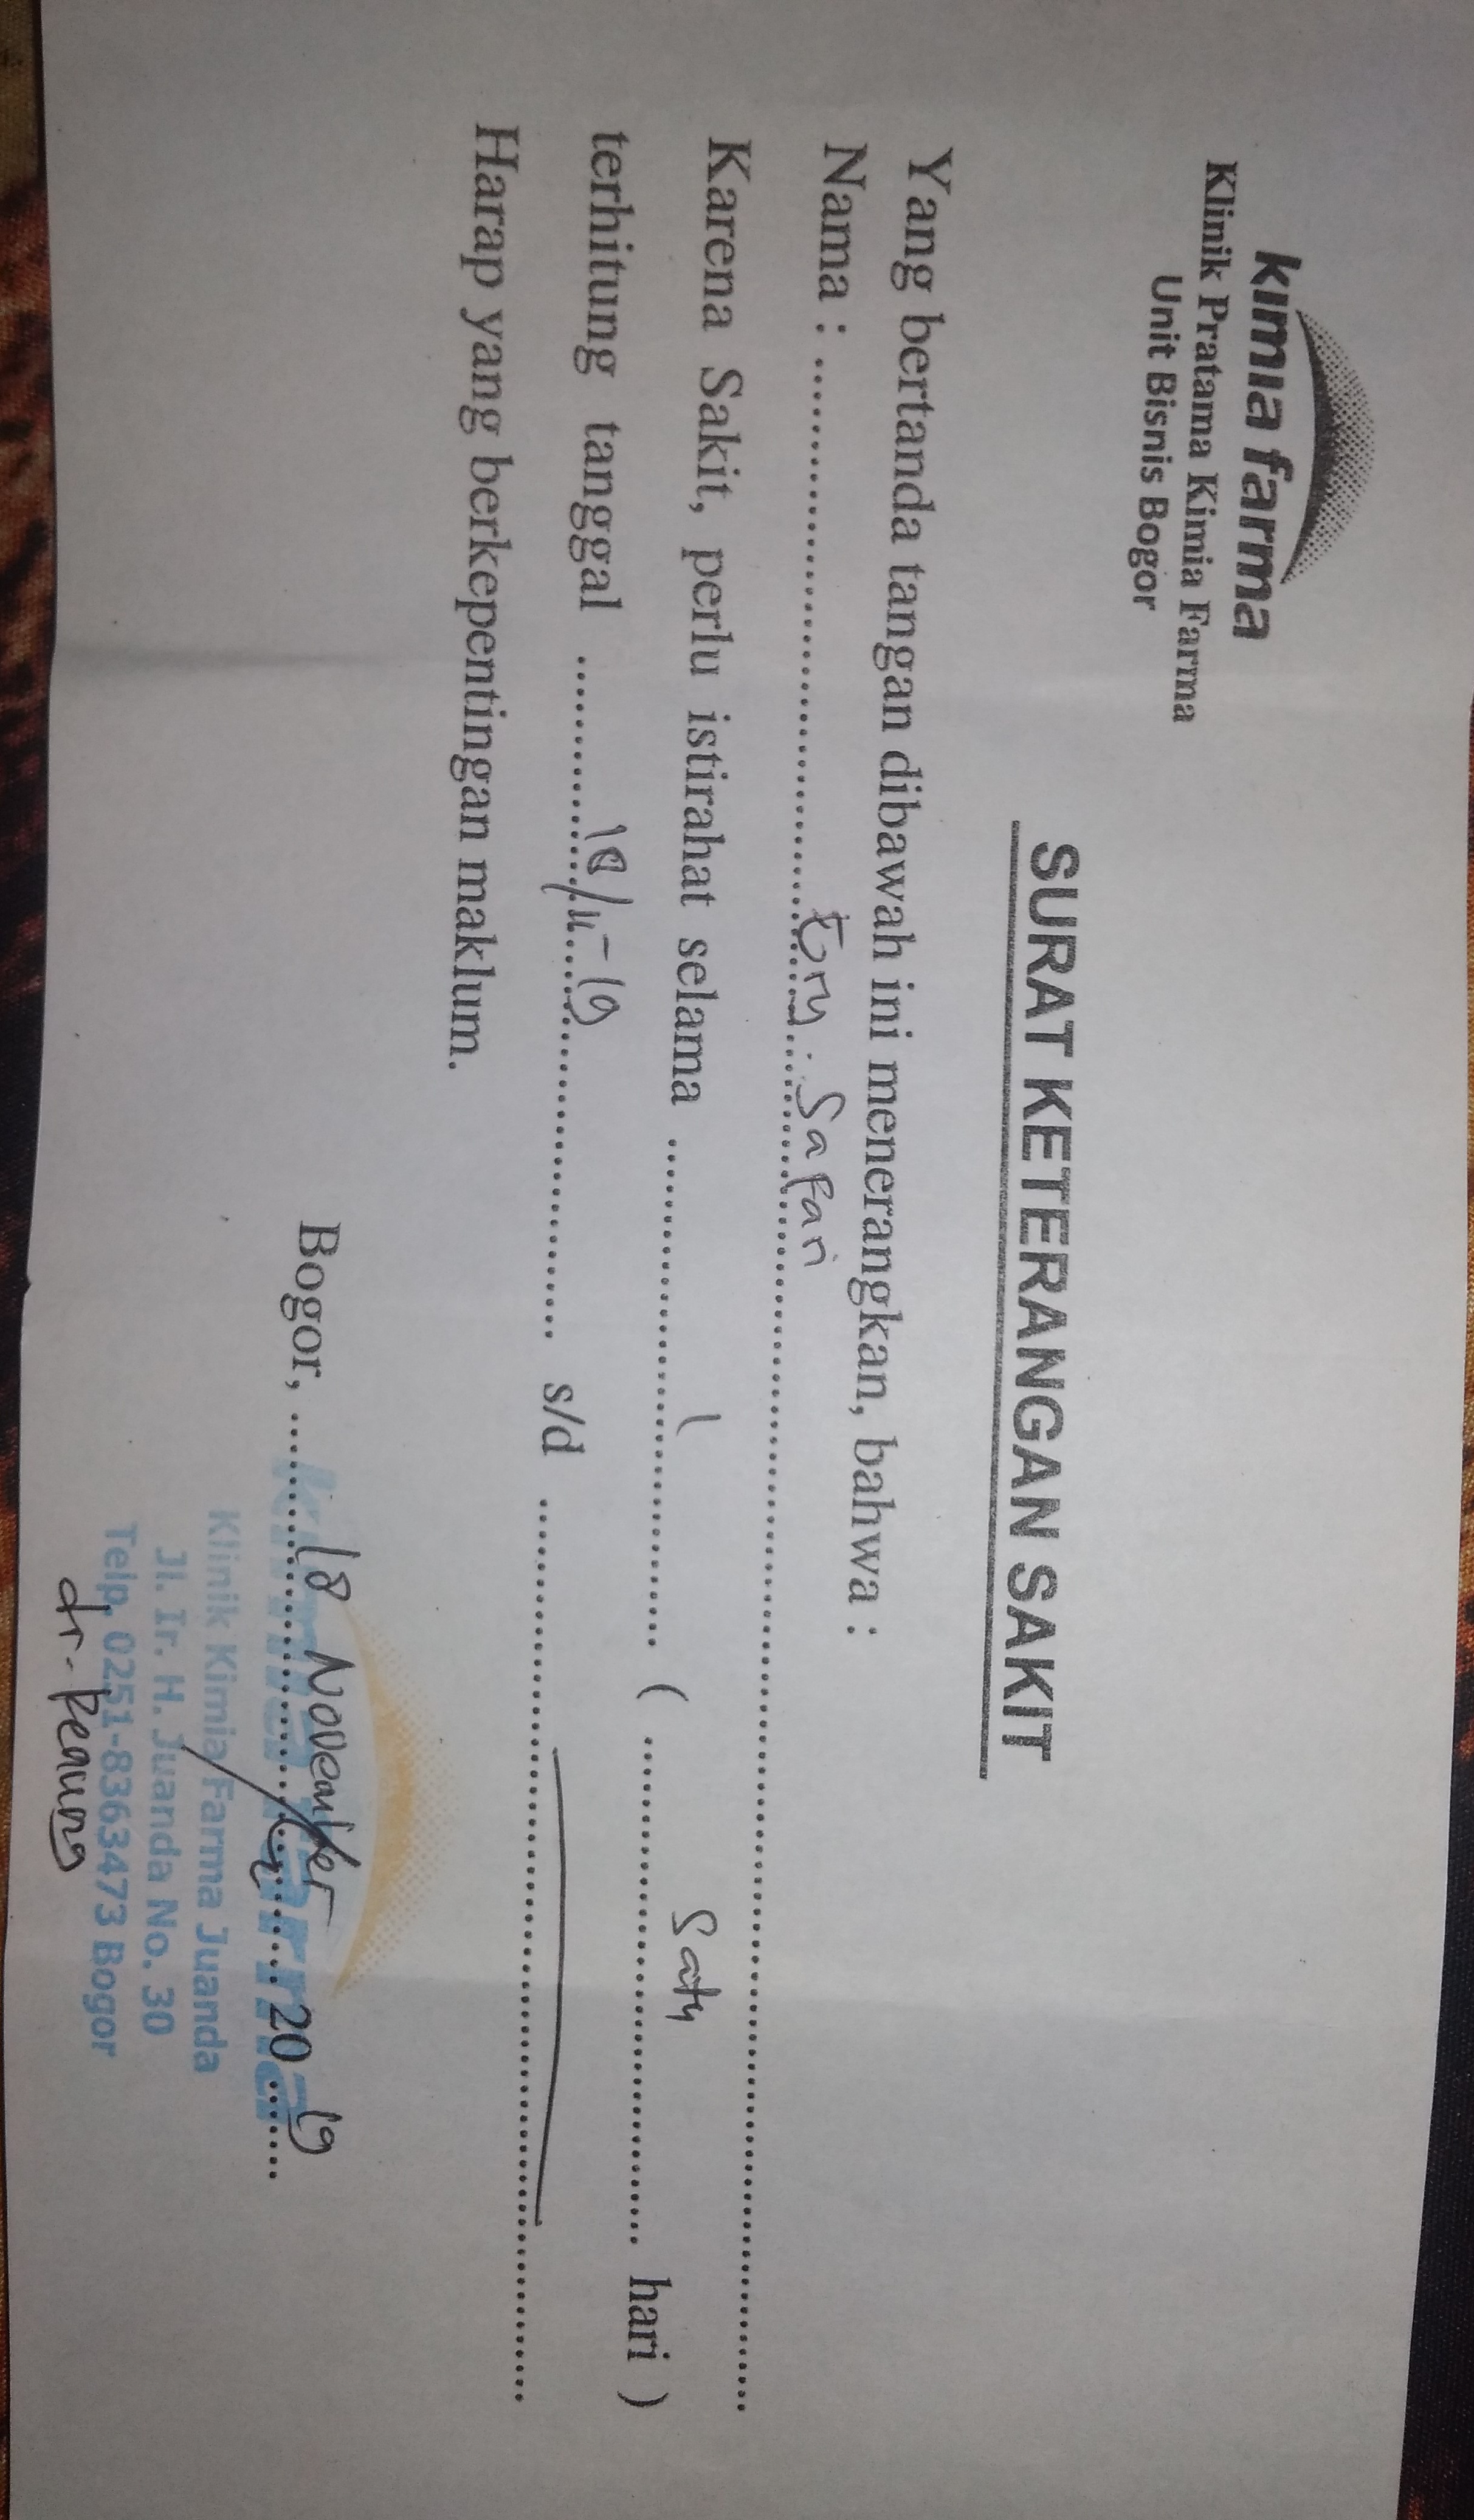 kimia farma
Klinik Pratama Kimia Farma
Unit Bisnis Bogor
SURAT KETERANGAN SAKIT
Yang bertanda tangan dibawah ini menerangkan, bahwa :
Nama : ........ Safari ........
Karena Sakit, perlu istirahat selama ........ 1 ........ ( ........ Satu ........ hari )
terhitung tanggal ........ 18/11-19 ........ s/d ........
Harap yang berkepentingan maklum.
Bogor, ........ 18 November ........ 20 19
kimia farma
Klinik Kimia Farma Juanda
Jl. Ir. H. Juanda No. 30
Telp. 0251-8363473 Bogor
dr.